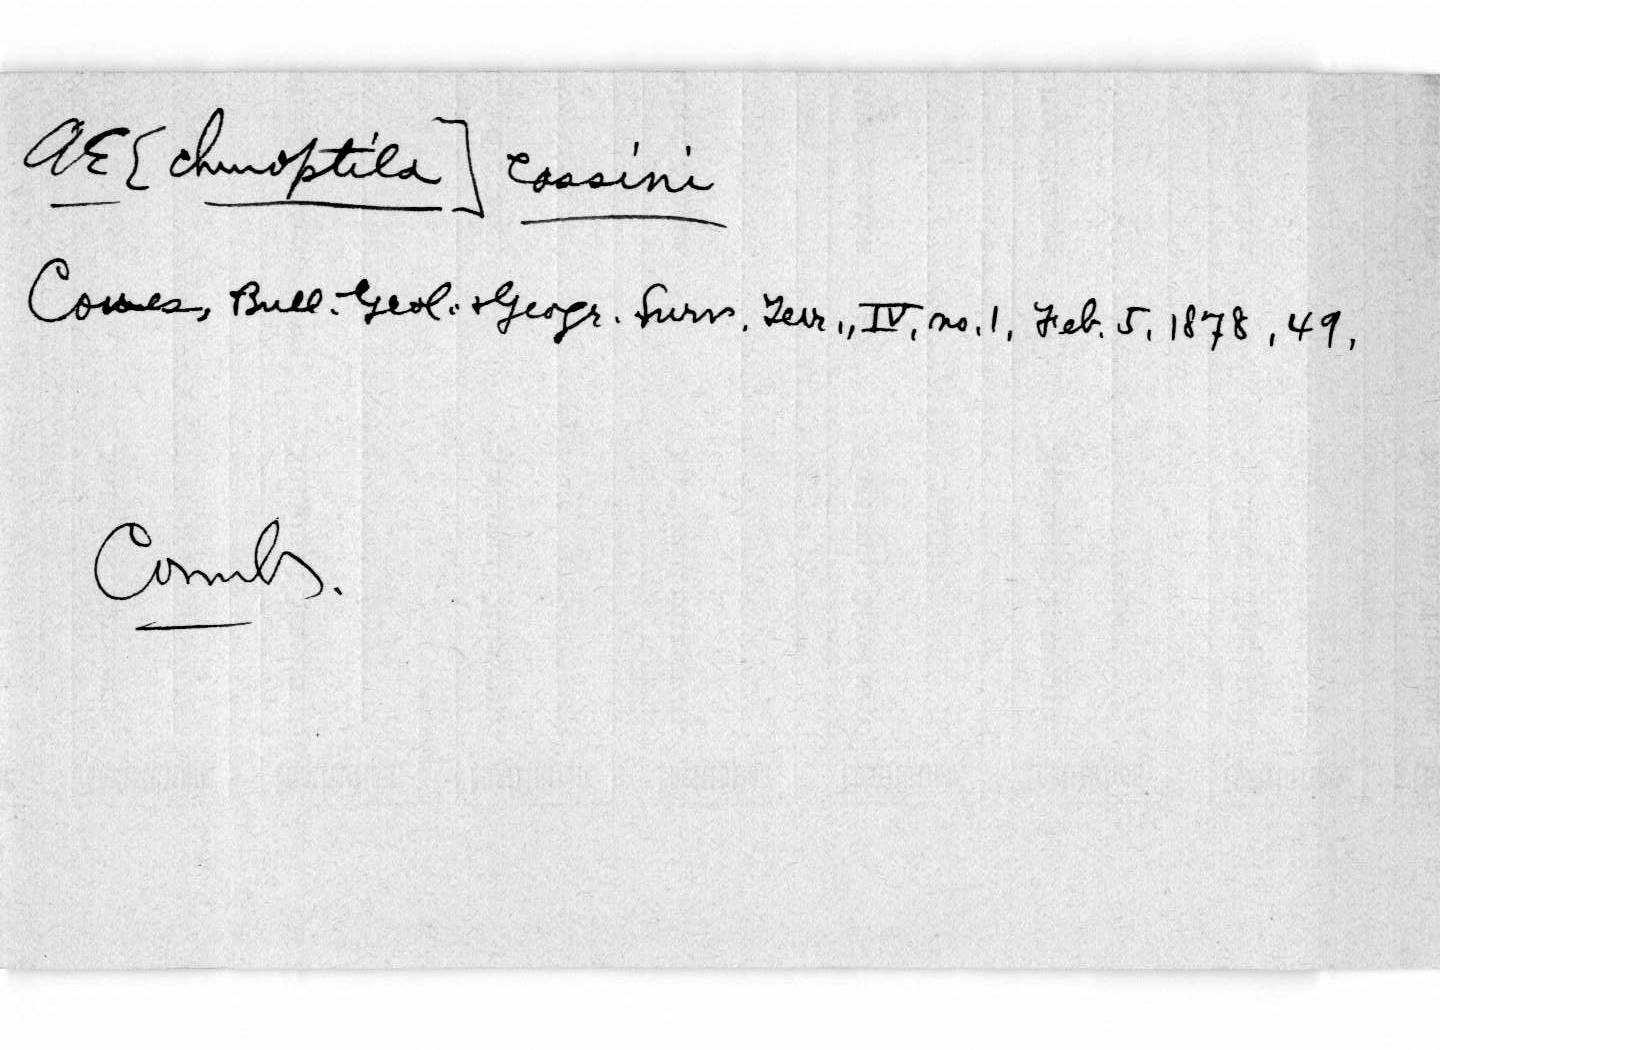 AE[chmoptila] cassini
Coues, Bull. Geol. & Geogr. Surv. Terr., IV, no. 1, Feb. 5, 1878, 49,
Comb.